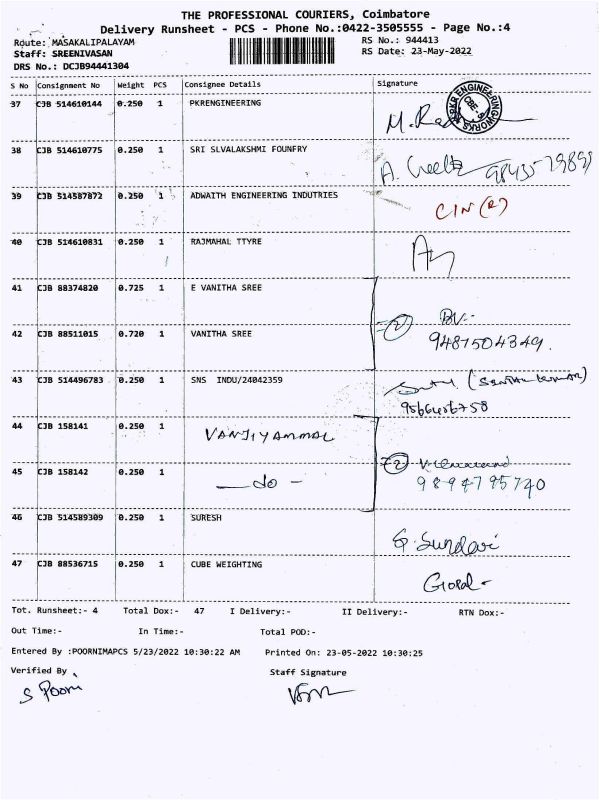 THE PROFESSIONAL COURIERS, Coimbatore
Delivery Runsheet - PCS - Phone No.:0422-3505555 - Page No.:4
Route: MASAKALIPALAYAM RS No.: 944413
Staff: SREENIVASAN RS Date: 23-May-2022
DRS No.: DCJB94441304
S No Consignment No Weight PCS Consignee Details Signature
37 CJB 514610144 0.250 1 PKRENGINEERING M.
PKR ENGINEERING WORKS CBE-
38 CJB 514610775 0.250 1 SRI SLVALAKSHMI FOUNFRY A. Geetz
39 CJB 514587872 0.250 1 ADWAITH ENGINEERING INDUTRIES CIN (R)
40 CJB 514610831 0.250 1 RAJMAHAL TTYRE
41 CJB 88374820 0.725 1 E VANITHA SREE
42 CJB 88511015 0.720 1 VANITHA SREE 2 9487504349.
43 CJB 514496783 0.250 1 SNS INDU/24042359 (SENTHIL KUMAR)
44 CJB 158141 0.250 1 VANJIYAMMAL
45 CJB 158142 0.250 1 — do - 2 9894795740
46 CJB 514589309 0.250 1 SURESH G. Sundari
47 CJB 88536715 0.250 1 CUBE WEIGHTING Gopal
Tot. Runsheet:- 4 Total Dox:- 47 I Delivery:- II Delivery:- RTN Dox:-
Out Time:- In Time:- Total POD:-
Entered By :POORNIMAPCS 5/23/2022 10:30:22 AM Printed On: 23-05-2022 10:30:25
Verified By Staff Signature
S Poorni